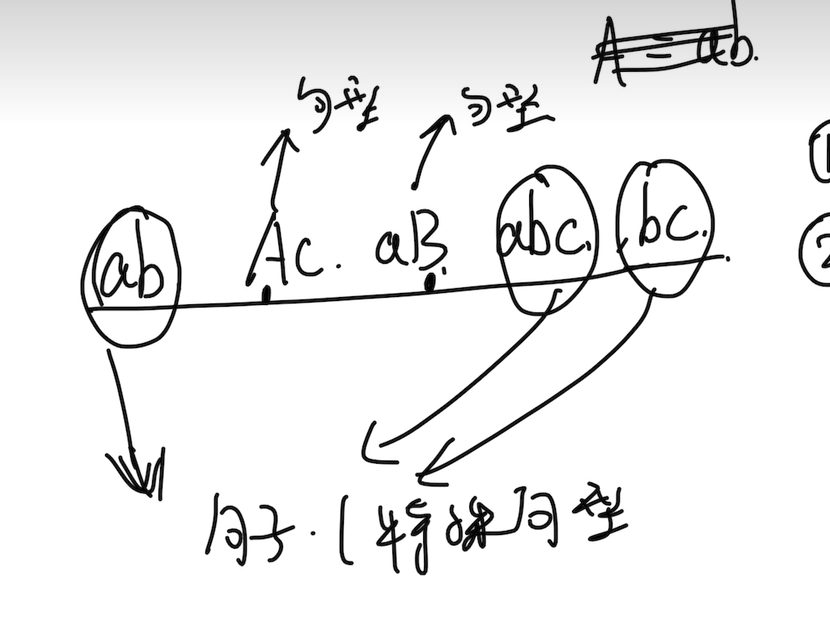 A = ab.
句型 句型
①
ab Ac. aB. abc. bc.
②
句子.(特殊)句型